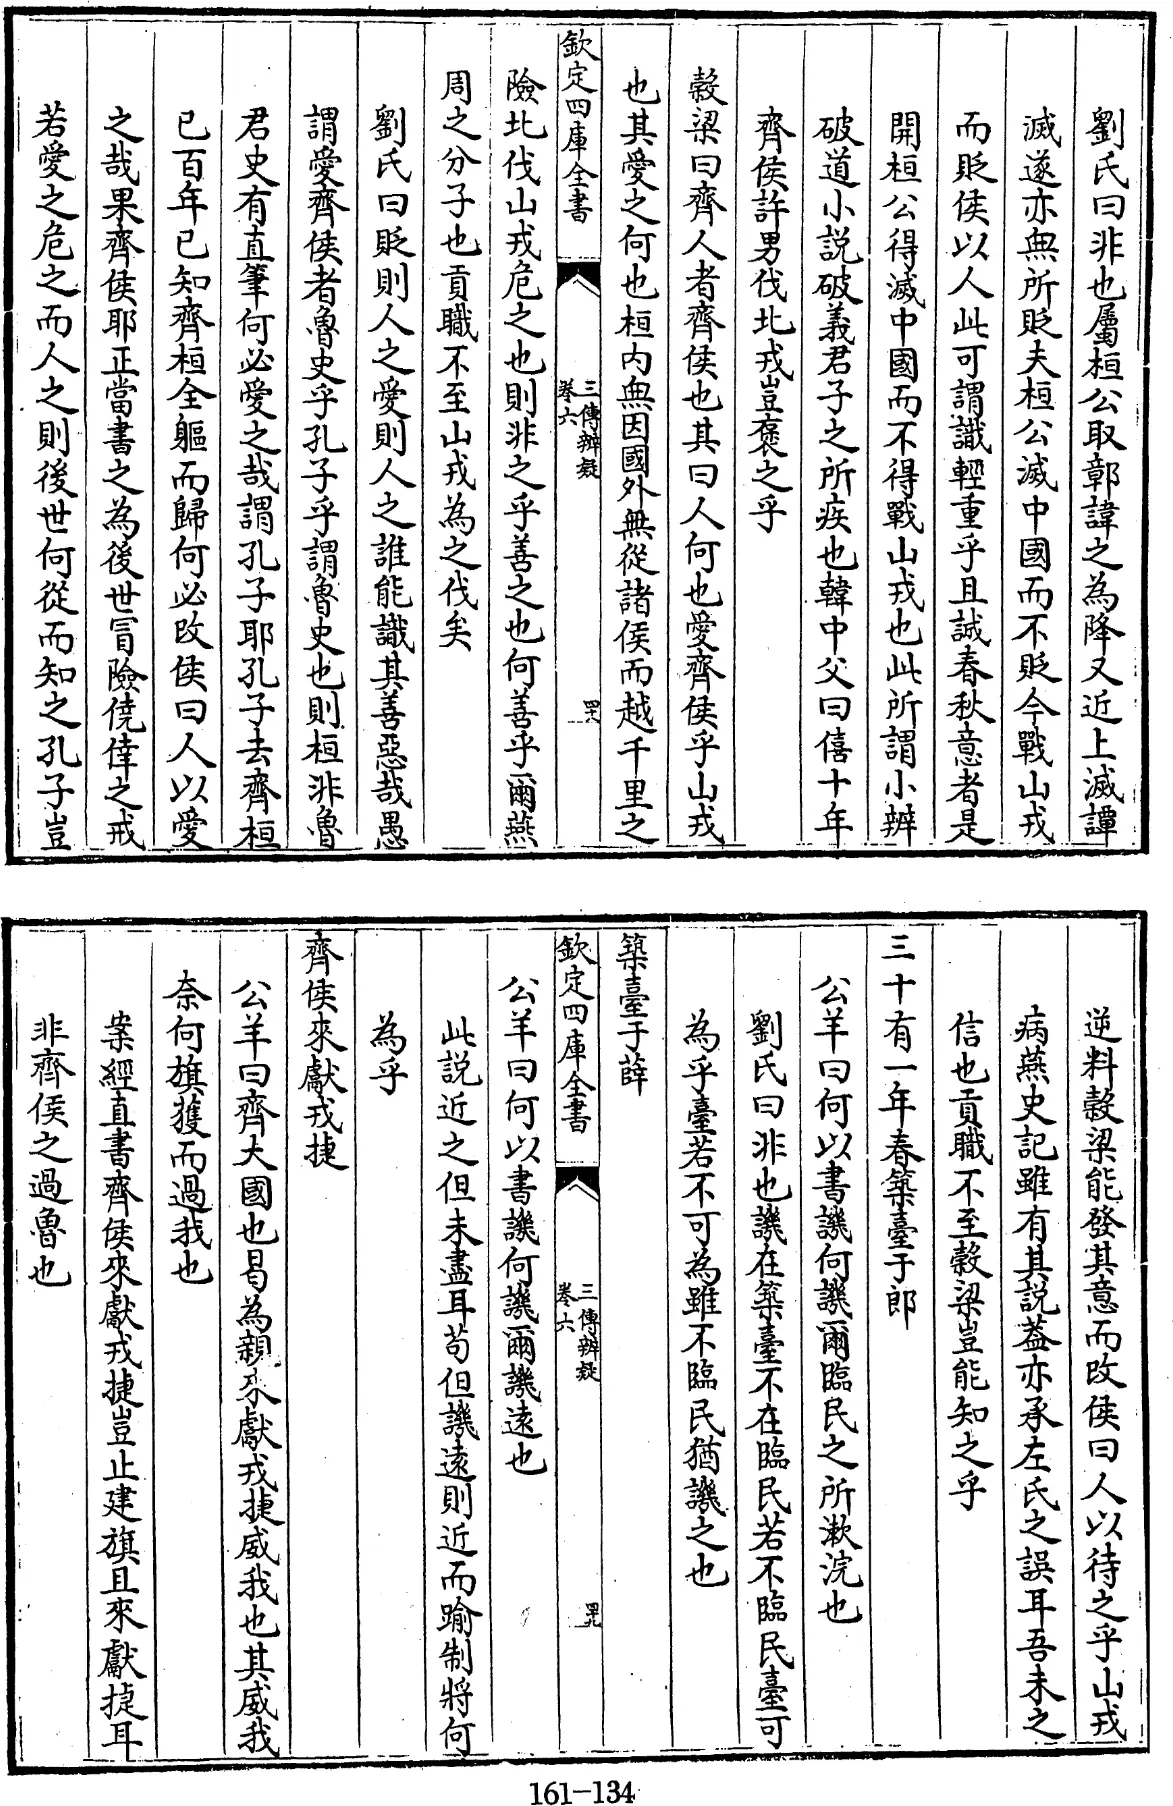 劉氏曰非也屬桓公取鄣諱之為降又近上滅譚
滅遂亦無所貶夫桓公滅中國而不貶今戰山戎
而貶侯以人此可謂識輕重乎且誠春秋意者是
開桓公得滅中國而不得戰山戎也此所謂小辨
破道小説破義君子之所疾也韓中父曰僖十年
齊侯許男伐北戎豈褒之乎
穀梁曰齊人者齊侯也其曰人何也愛齊侯乎山戎
也其愛之何也桓内無因國外無從諸侯而越千里之
欽定四庫全書
三傳辨疑
卷六
四十八
險北伐山戎危之也則非之乎善之也何善乎爾燕
周之分子也貢職不至山戎為之伐矣
劉氏曰貶則人之愛則人之誰能識其善惡哉愚
謂愛齊侯者魯史乎孔子乎謂魯史也則桓非魯
君史有直筆何必愛之哉謂孔子耶孔子去齊桓
已百年已知齊桓全軀而歸何必改侯曰人以愛
之哉果齊侯耶正當書之為後世冒險僥倖之戒
若愛之危之而人之則後世何從而知之孔子豈
逆料穀梁能發其意而改侯曰人以待之乎山戎
病燕史記雖有其説葢亦承左氏之誤耳吾未之
信也貢職不至穀梁豈能知之乎
三十有一年春築臺于郎
公羊曰何以書譏何譏爾臨民之所漱浣也
劉氏曰非也譏在築臺不在臨民若不臨民臺可
為乎臺若不可為雖不臨民猶譏之也
築臺于薛
欽定四庫全書
三傳辨疑
卷六
四十九
公羊曰何以書譏何譏爾譏逺也
此説近之但未盡耳苟但譏逺則近而踰制將何
為乎
齊侯來獻戎捷
公羊曰齊大國也曷為親來獻戎捷威我也其威我
奈何旗獲而過我也
案經直書齊侯來獻戎捷豈止建旗且來獻捷耳
非齊侯之過魯也
161-134